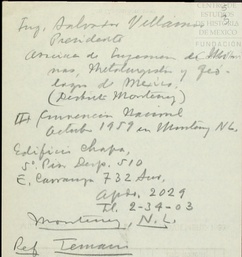 Ing. Salvador Villarreal
Presidente
de Ingenieros de Mi
nas, Metalurgistas y Geó
logos de México.
(Distrito Monterrey)
III Convención Nacional
Octubre 1959 en Monterrey N.L.
Edificio Chapa,
5º Piso Desp. 510
E. Carranza 732 Sur.
Apdo. 2029
Tl. 2-34-03
Monterrey, N.L.
Ref
CENTRO DE
ESTUDIOS
DE HISTORIA
DE MÉXICO
FUNDACIÓN